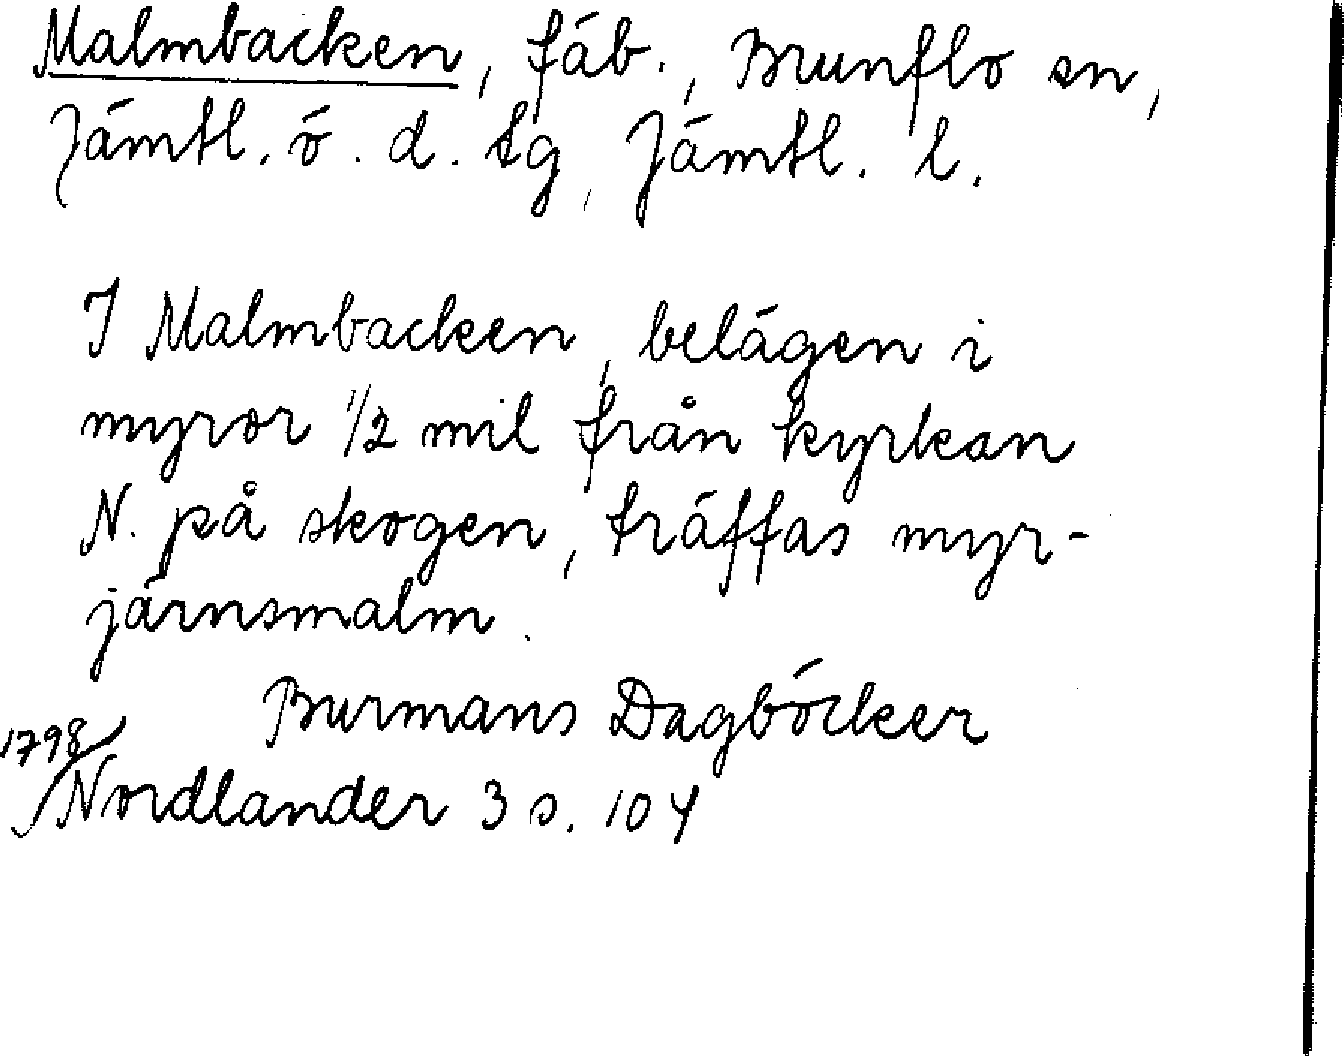 Malmbacken, fäb., Brunflo sn,
Jämtl. ö. d. tg, Jämtl. l.
I Malmbacken, belägen i
myror 1/2 mil från kyrkan
N. på skogen, träffas myr-
järnsmalm.
Burmans Dagböcker
1798
Nordlander 3 s. 104